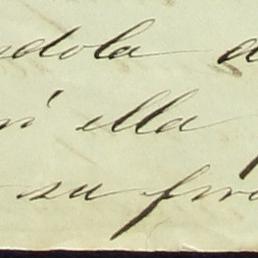 ndola d
ni ella
su fir